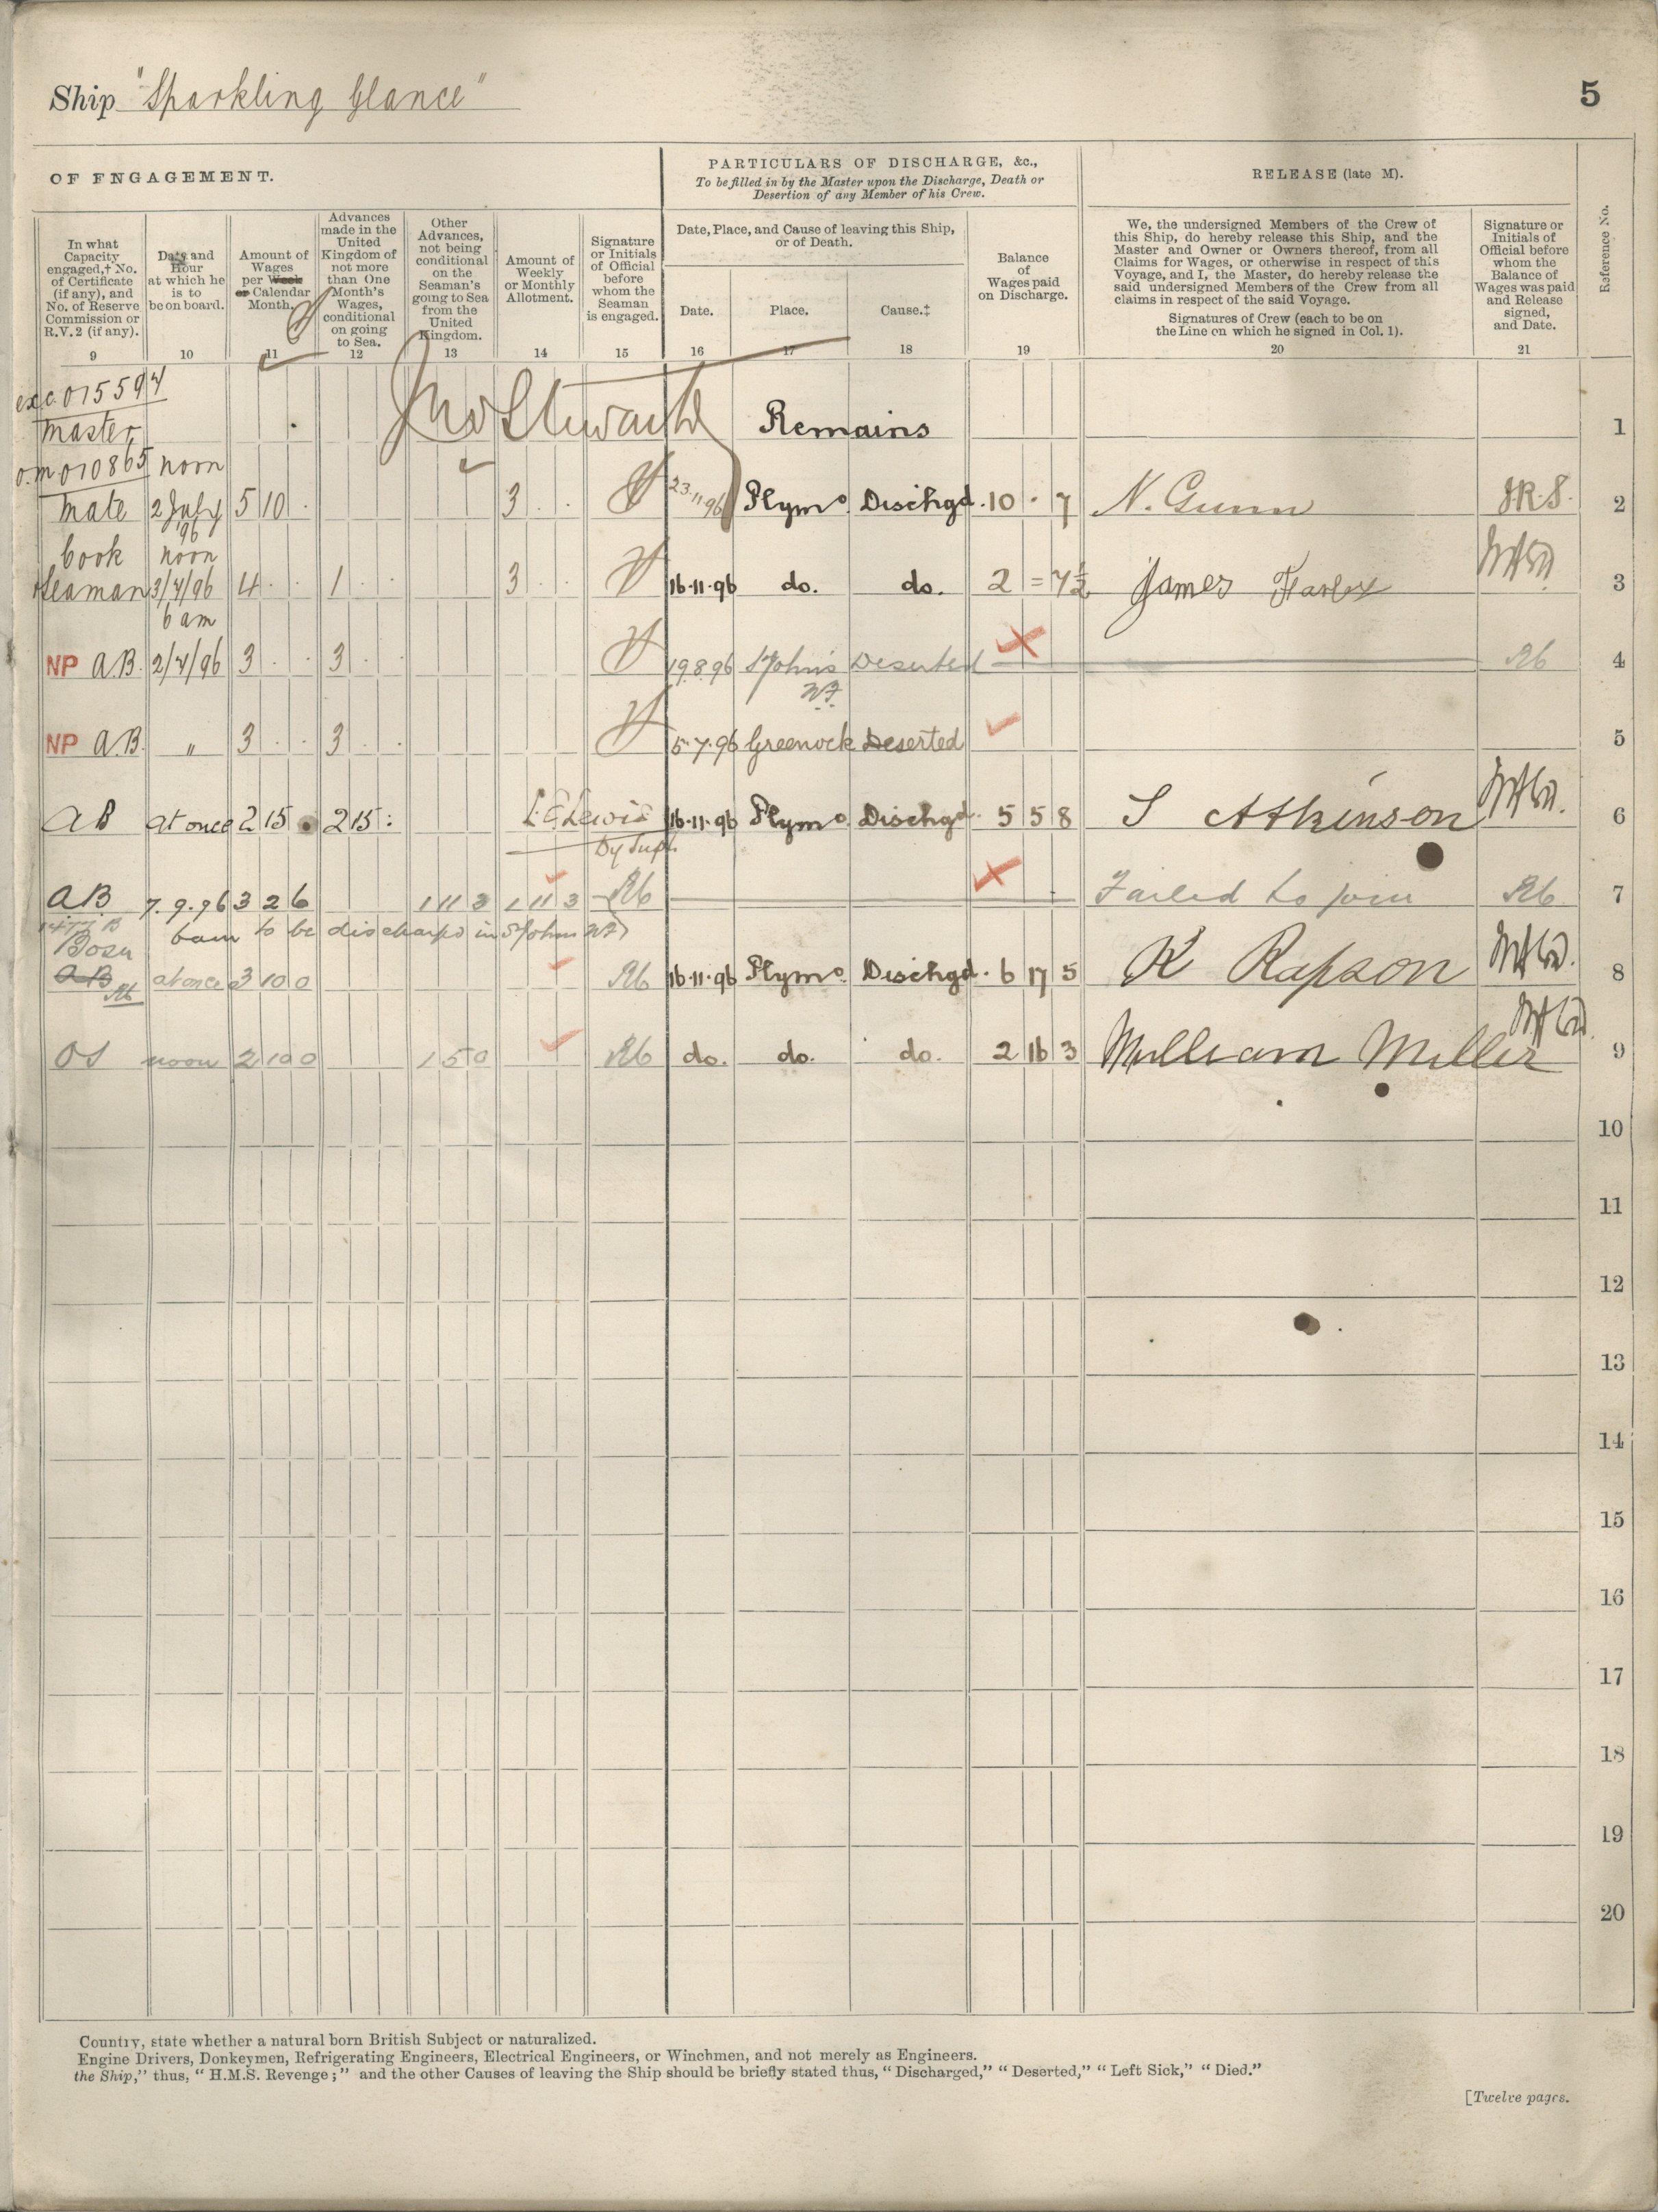 Ship "Sparkling Glance"
5
OF ENGAGEMENT.
PARTICULARS OF DISCHARGE, &c.,
To be filled in by the Master upon the Discharge, Death or
Desertion of any Member of his Crew.
RELEASE (late M).
Reference No.
In what
Capacity
engaged,† No.
of Certificate
(if any), and
No. of Reserve
Commission or
R.V. 2 (if any).
9
Date and
Hour
at which he
is to
be on board.
10
Amount of
Wages
per Week
or Calendar
Month.
11
Advances
made in the
United
Kingdom of
not more
than One
Month's
Wages,
conditional
on going
to Sea.
12
Other
Advances,
not being
conditional
on the
Seaman's
going to Sea
from the
United
Kingdom.
13
Amount of
Weekly
or Monthly
Allotment.
14
Signature
or Initials
of Official
before
whom the
Seaman
is engaged.
15
Date, Place, and Cause of leaving this Ship,
or of Death.
Date.
16
Place.
17
Cause.‡
18
Balance
of
Wages paid
on Discharge.
19
We, the undersigned Members of the Crew of
this Ship, do hereby release this Ship, and the
Master and Owner or Owners thereof, from all
Claims for Wages, or otherwise in respect of this
Voyage, and I, the Master, do hereby release the
said undersigned Members of the Crew from all
claims in respect of the said Voyage.
Signatures of Crew (each to be on
the Line on which he signed in Col. 1).
20
Signature or
Initials of
Official before
whom the
Balance of
Wages was paid
and Release
signed,
and Date.
21
015594
Master Remains 1
010865 noon
Mate 2 July 5 10 3 23.11.96 Plymo Dischgd. 10 . 7 N. Gunn J.R.S. 2
96
Cook noon
Seaman 3/7/96 4 1 3 16.11.96 do. do. 2 = 7½ James 3
6 am
NP A.B. 2/7/96 3 3 19.8.96 St John's Deserted 4
NF
NP A.B. " 3 3 5.7.96 Greenock Deserted 5
AB at once 2 15 2 15 Lewis 16.11.96 Plymo Dischgd. 5 5 8 S Atkinson 6
Dy Supt.
AB 7.9.96 3 2 6 1 11 3 1 11 3 Failed to join 7
6am to be discharged in St Johns NF
Bosn
AB at once 3 10 0 16.11.96 Plymo. Dischgd. 6 17 5 K Rapson 8
OS noon 2 10 0 1 5 0 do. do. do. 2 16 3 William Miller 9
10
11
12
13
14
15
16
17
18
19
20
Country, state whether a natural born British Subject or naturalized.
Engine Drivers, Donkeymen, Refrigerating Engineers, Electrical Engineers, or Winchmen, and not merely as Engineers.
the Ship," thus, "H.M.S. Revenge;" and the other Causes of leaving the Ship should be briefly stated thus, "Discharged," "Deserted," "Left Sick," "Died."
[Twelve pages.